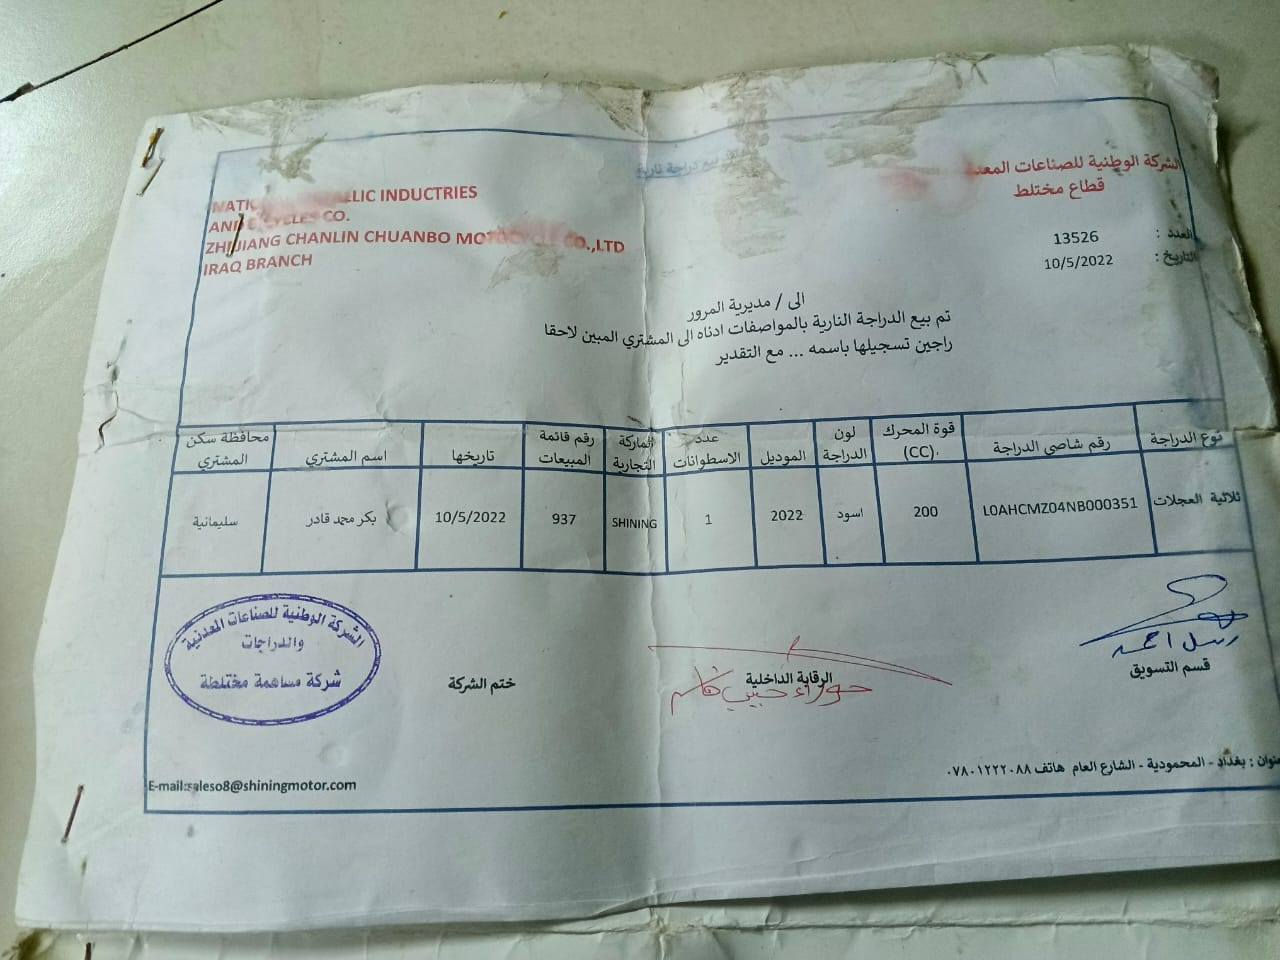 الشركة الوطنية للصناعات
قطاع مختلط
العدد : 13526
التاريخ : 10/5/2022
INDUCTRIES
CO.
CHANLIN CHUANBO CO.,LTD
IRAQ BRANCH
الى / مديرية المرور
تم بيع الدراجة النارية بالمواصفات ادناه الى المشتري المبين لاحقا
راجين تسجيلها باسمه ... مع التقدير
نوع الدراجة رقم شاصي الدراجة قوة المحرك (CC). لون الدراجة الموديل عدد الاسطوانات الماركة التجارية رقم قائمة المبيعات تاريخها اسم المشتري محافظة سكن المشتري
ثلاثية العجلات L0AHCMZ04NB000351 200 اسود 2022 1 SHINING 937 10/5/2022 بكر محمد قادر سليمانية
الشركة الوطنية للصناعات المعدنية
والدراجات
شركة مساهمة مختلطة
ختم الشركة
الرقابة الداخلية
حوراء حبيب قاسم
رسل احمد
قسم التسويق
بغداد - المحمودية - الشارع العام هاتف ٠٧٨٠١٢٢٢٠٨٨
E-mail:saleso8@shiningmotor.com